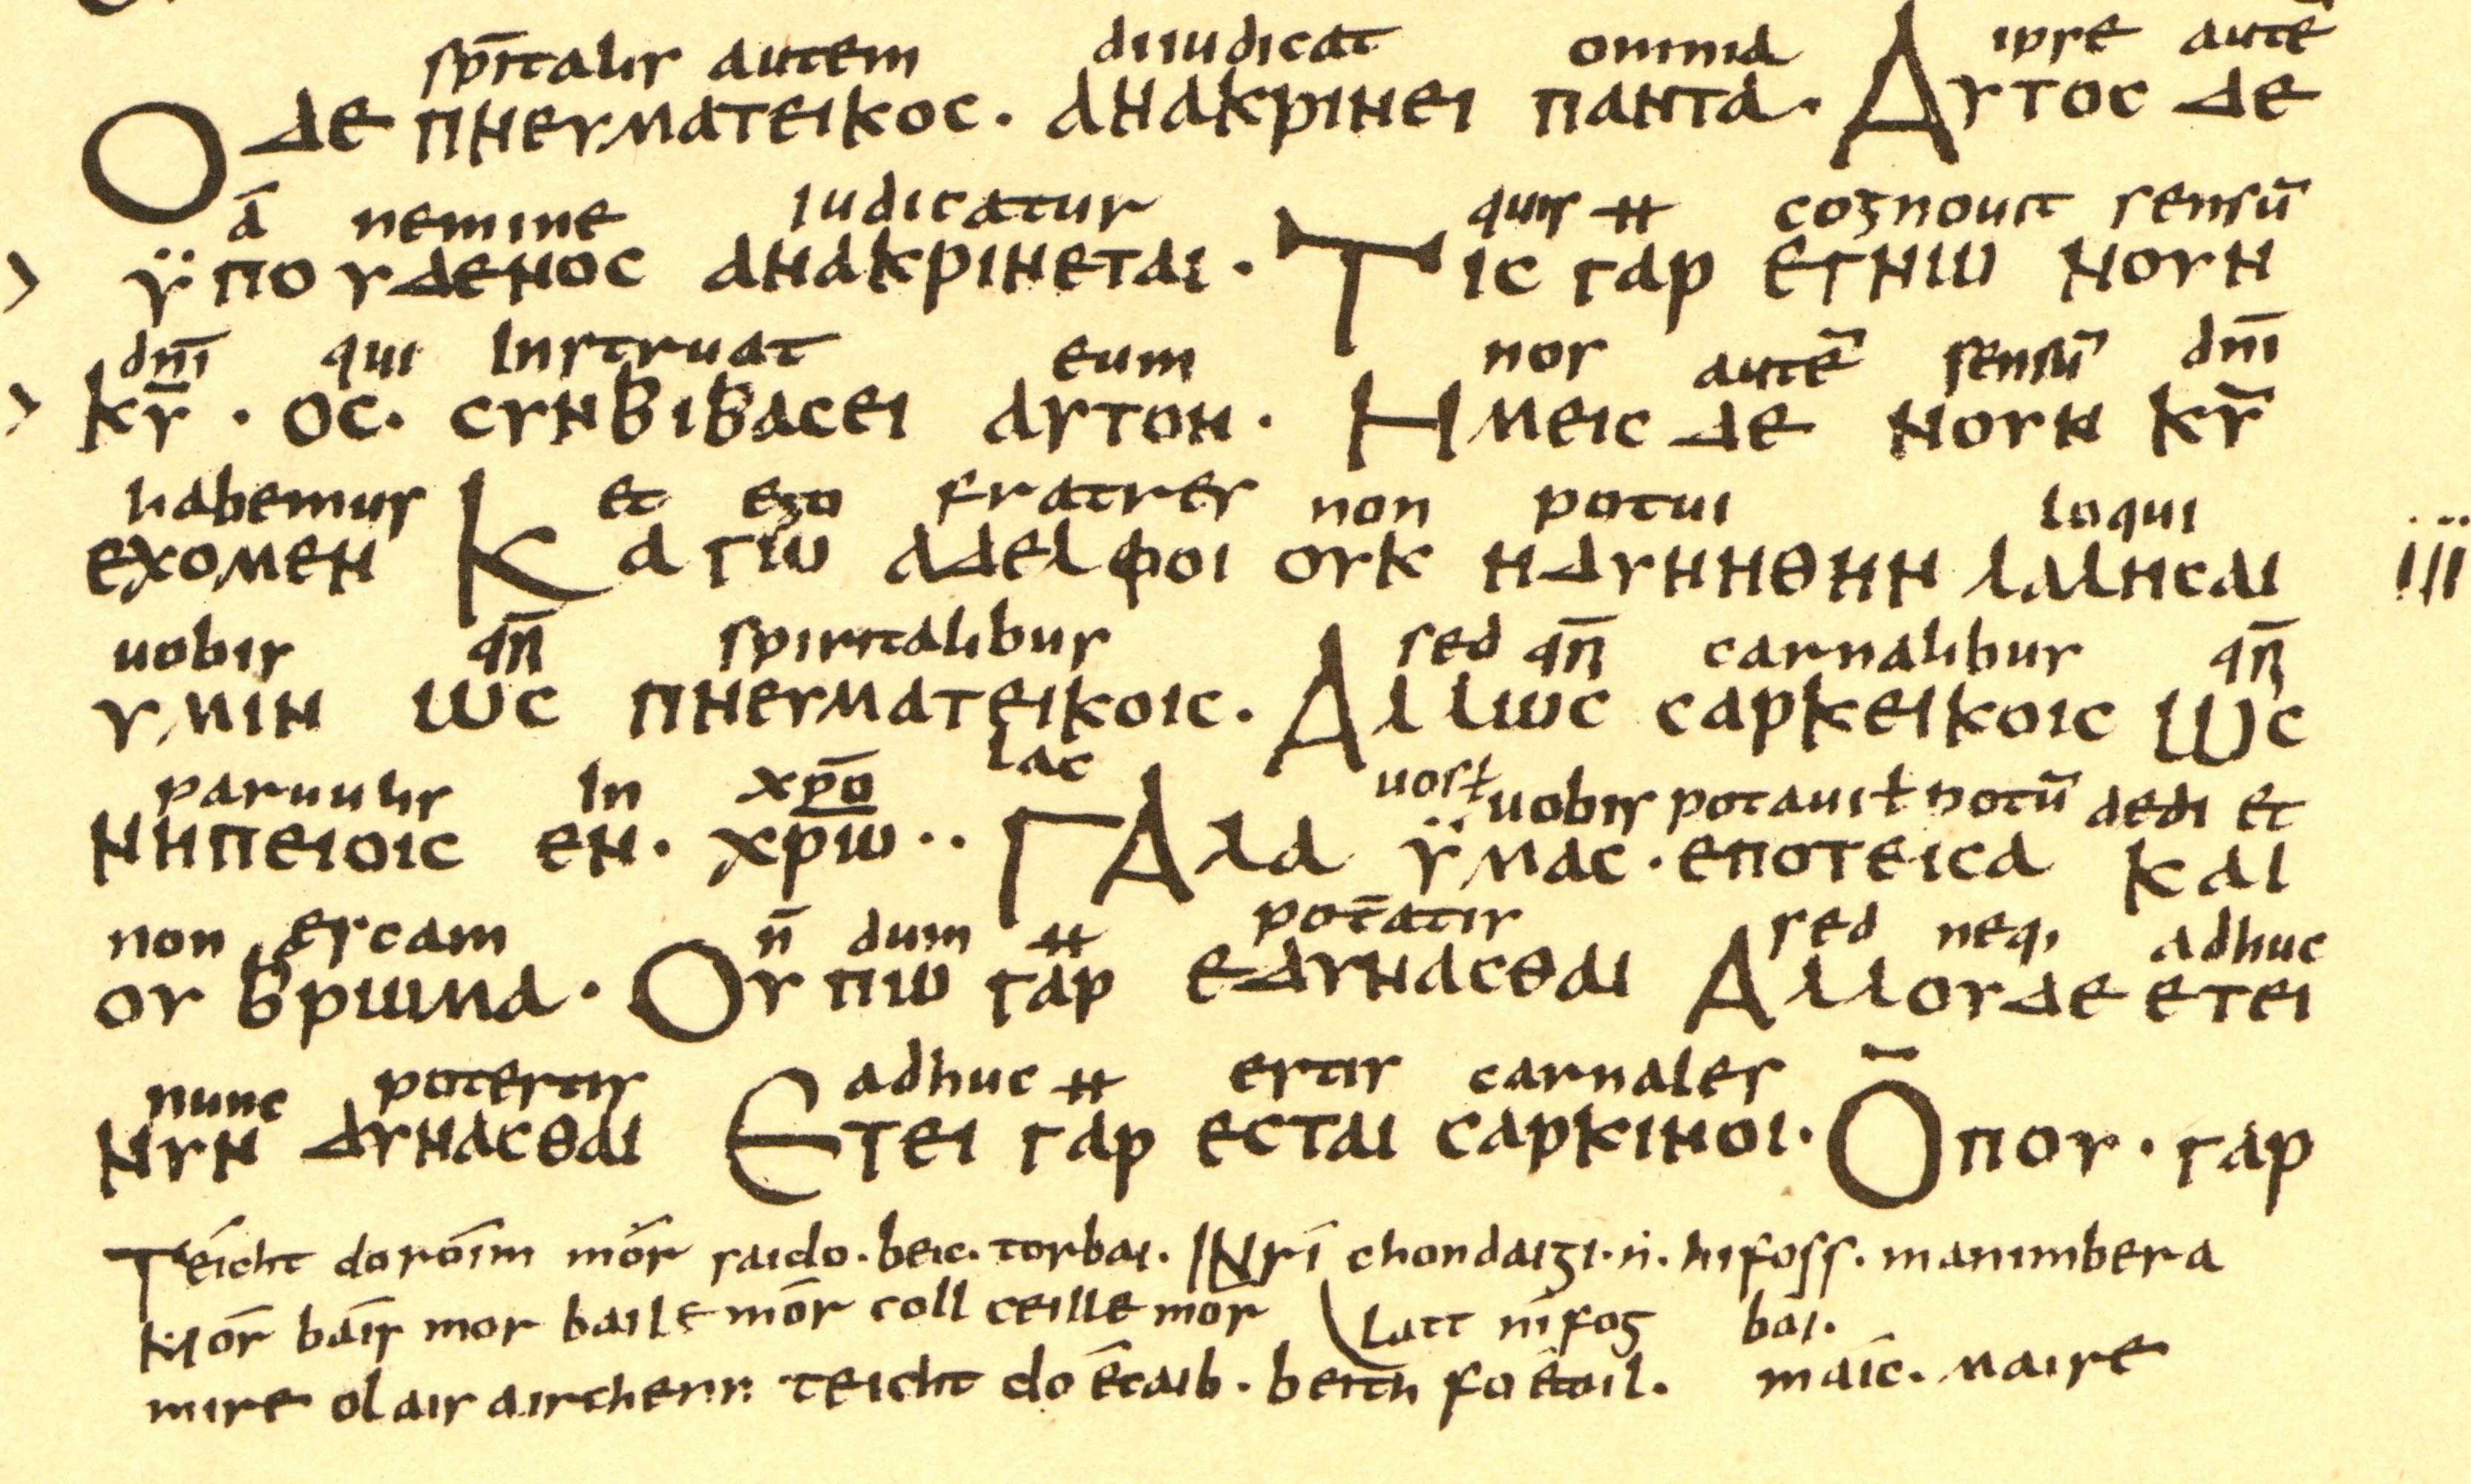 sp̄italis autem diiudicat omnia ipse autē
Ο δε πνευματεικος· ανακρινει παντα· Αυτος δε
ā nemine iudicatur quis ǁ cognouit sensū
ϋπο υδενος ανακρινεται· Τις γαρ εγνω νουν
dn̄i qui Instruat eum nos autē sensū dn̄i
κ̄ῡ · ος· συνβιβασει αυτον· Ημεις δε νουν κ̄ῡ
habemus et ego fratres non potui loqui
εχομεν Καγω αδελφοι ουκ ηδυνηθην λαλησαι iii
uobis qn̄ spiritalibus sed qn̄ carnalibus qn̄
υμιν ως πνευματεικοις· Αλλως σαρκεικοις ως
paruulis In xp̄o lac uosł uobis potauił potū dedi et
νηπειοις εν· χρω·· Γαλα ϋμας·εποτεισα και
non escam n̄ dum ǁ potatis sed neq, adhuc
ου βρωμα· Ου πω γαρ εδυνασθαι Αλλουδε ετει
nunc potestis adhuc ǁ estis carnales
νυν δυνασθαι Ετει γαρ εσται σαρκινοι· Οπου· γαρ
Téicht doróim mór saido·beic·torbai· INrí chondaigi·ṅ·hifoss·manimbera
Mór báis mor baile mór coll ceille mór latt nífog bai·
mire olais airchenn teicht do écaib·beith fo étoil· maíc·maire